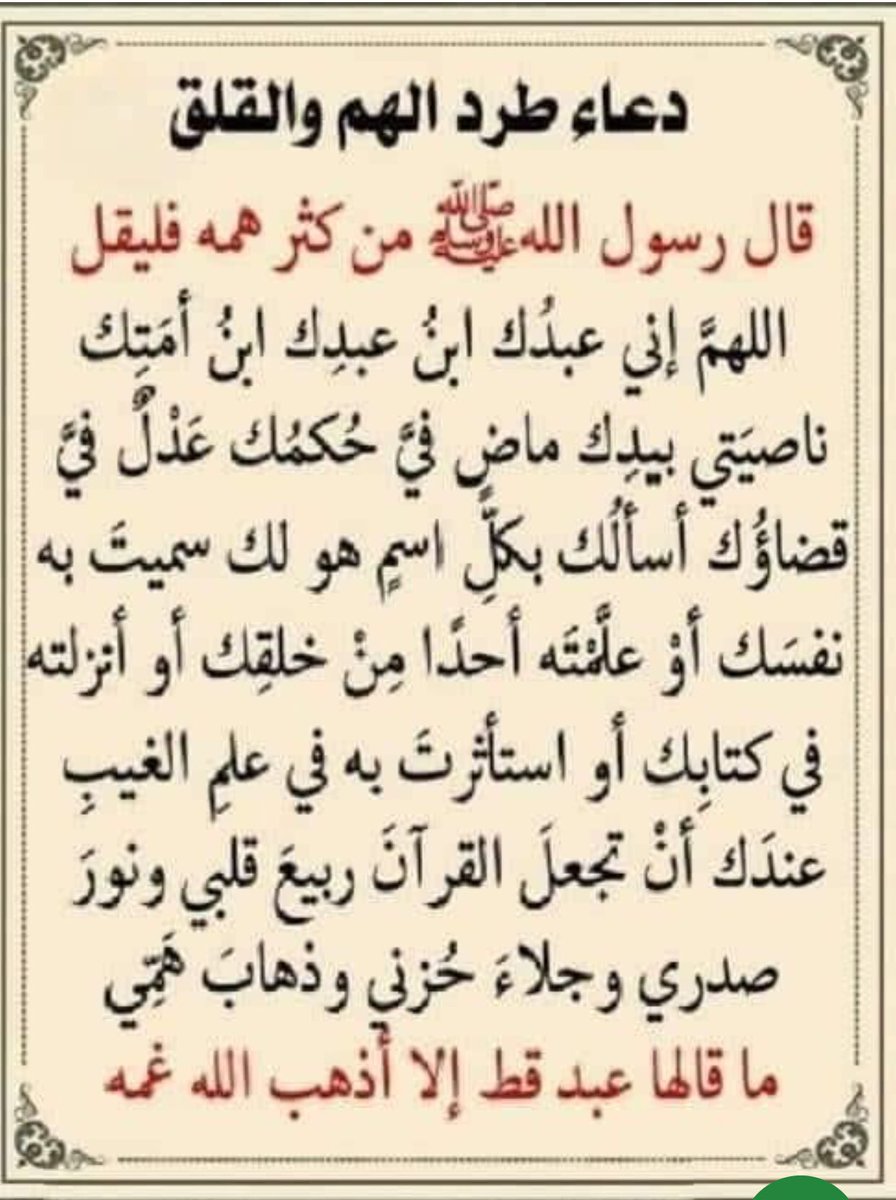 دعاء طرد الهم والقلق
قال رسول الله ﷺ من كثر همه فليقل
اللهمَّ إني عبدُك ابنُ عبدِك ابنُ أمَتِك
ناصيَتي بيدِك ماضٍ فيَّ حُكمُك عَدْلٌ فيَّ
قضاؤُك أسألُك بكلِّ اسمٍ هو لك سميتَ به
نفسَك أوْ علَّمْتَه أحدًا مِنْ خلقِك أو أنزلته
في كتابِك أو استأثرتَ به في علمِ الغيبِ
عندَك أنْ تجعلَ القرآنَ ربيعَ قلبي ونورَ
صدري وجلاءَ حُزني وذهابَ هَمِّي
ما قالها عبد قط إلا أذهب الله غمه